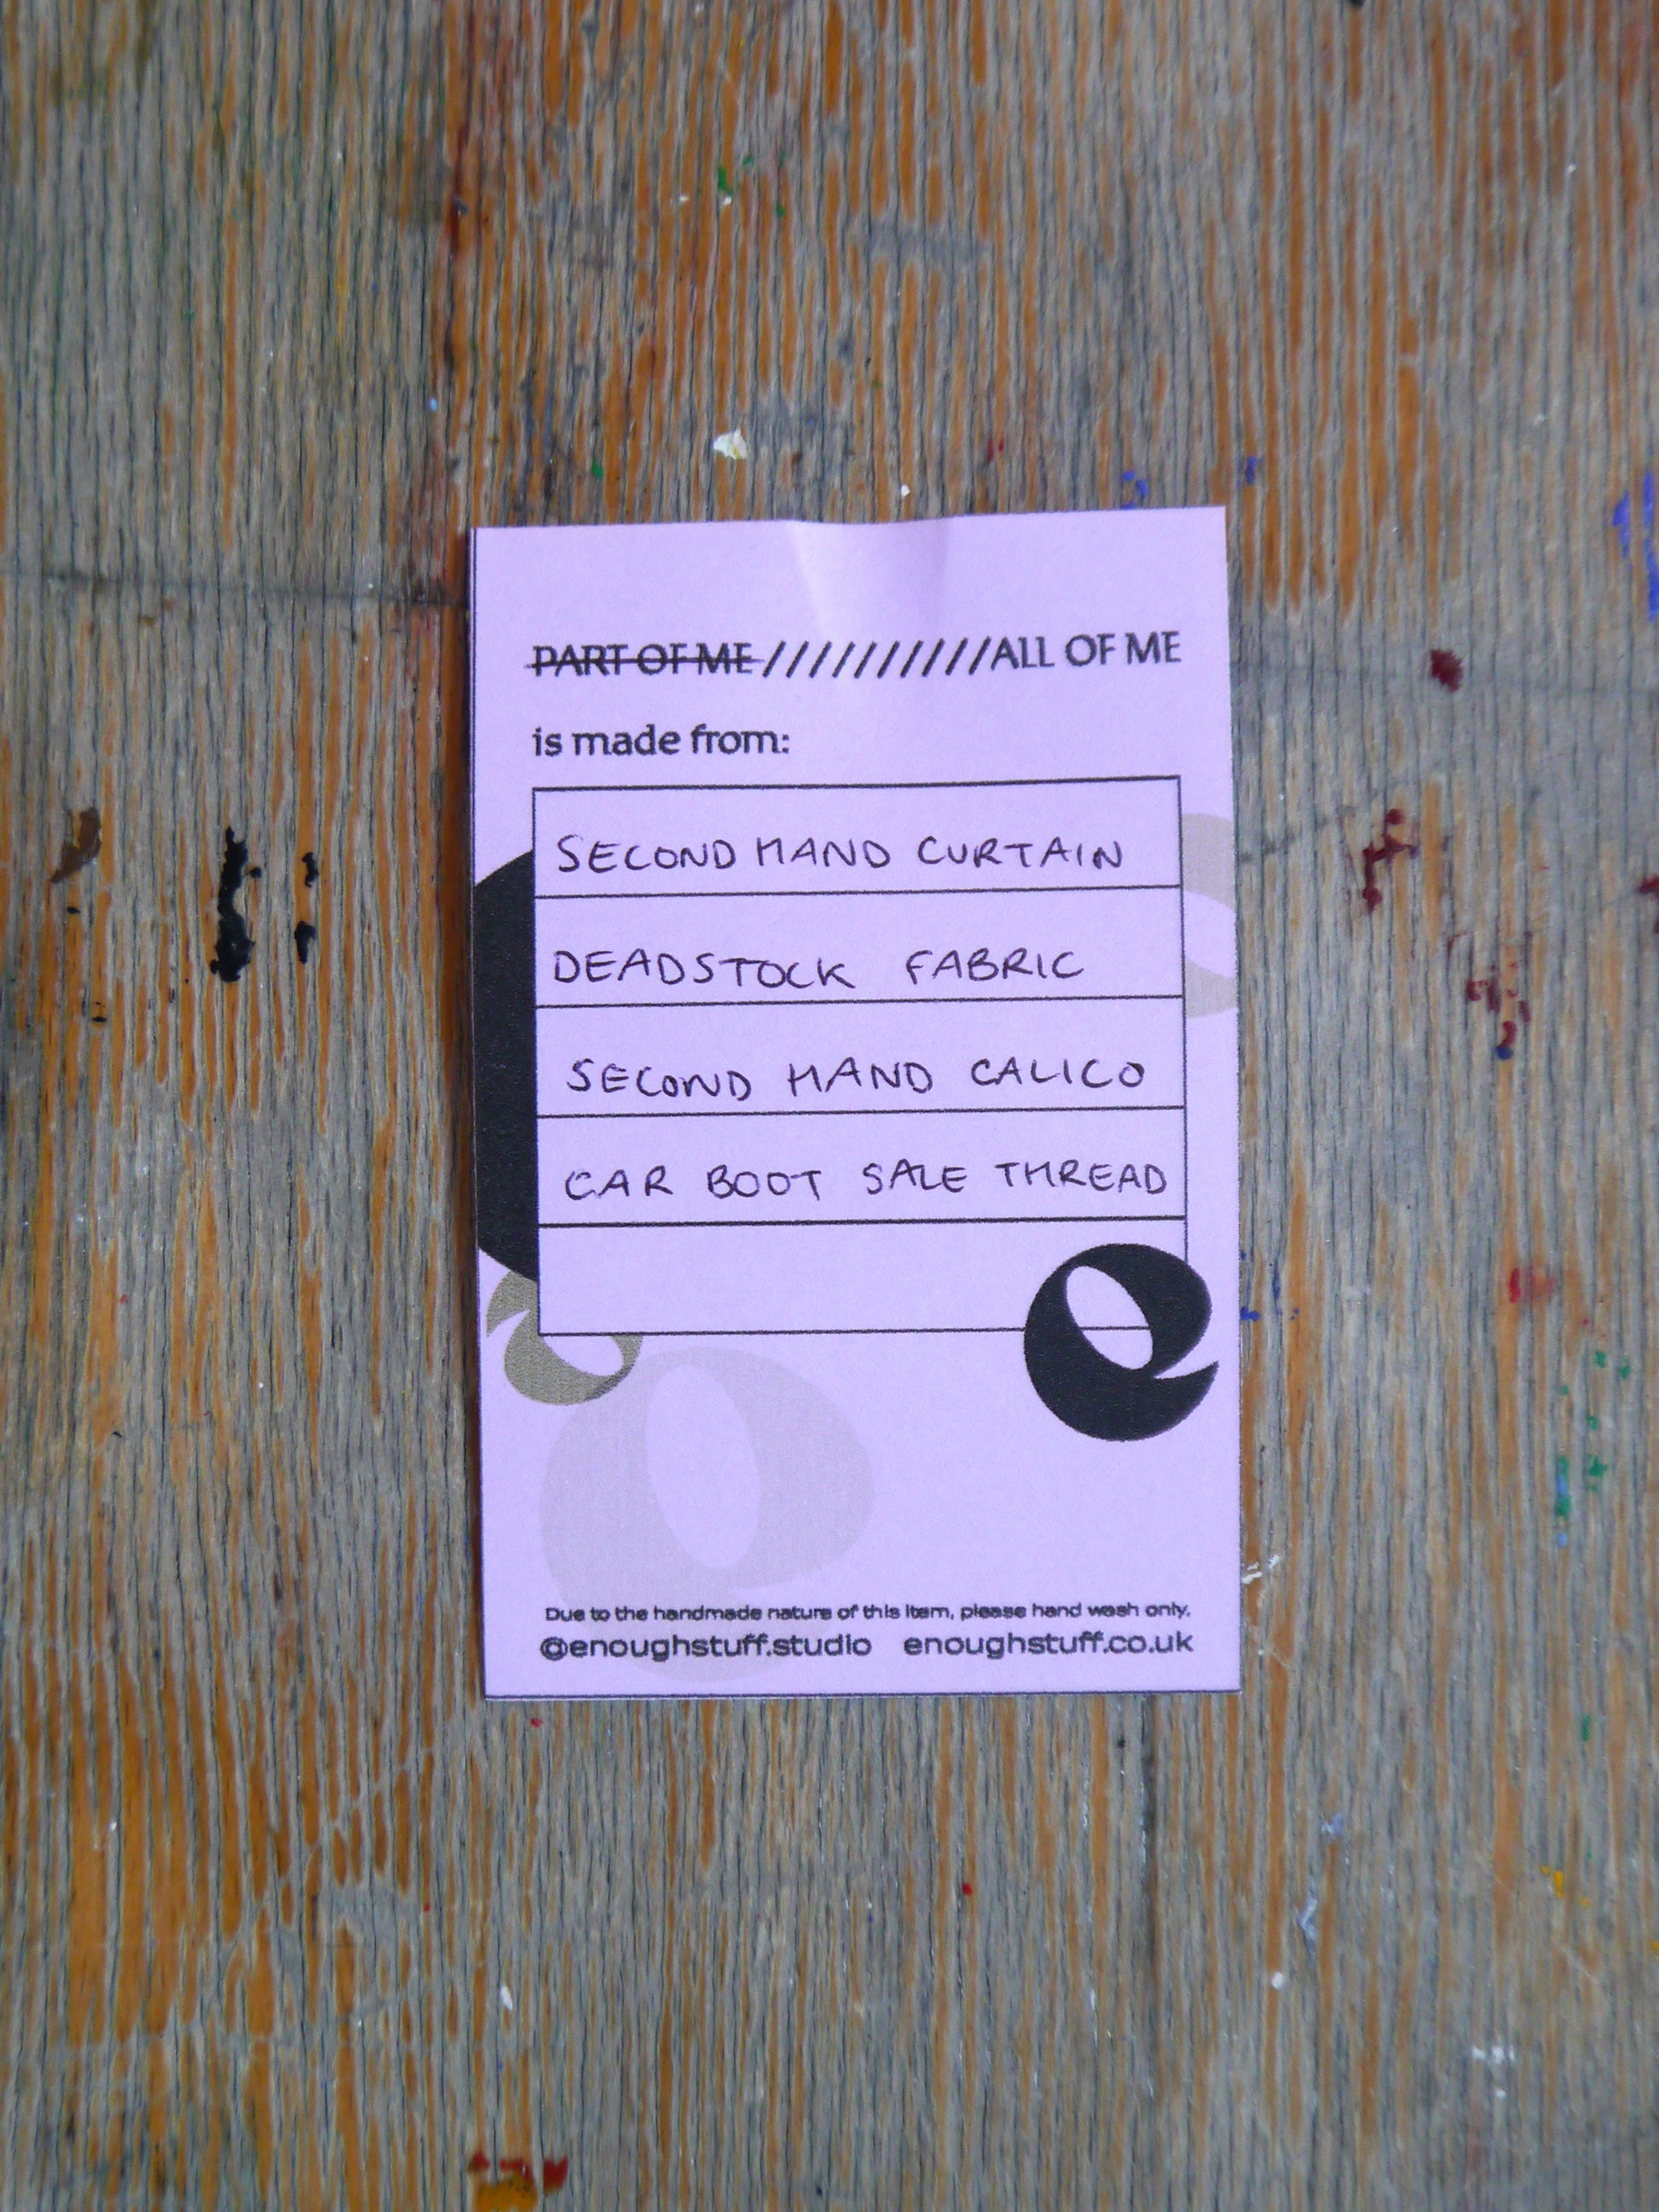 PART OF ME///////////ALL OF ME
is made from:
SECOND HAND CURTAIN
DEADSTOCK FABRIC
SECOND HAND CALICO
CAR BOOT SALE THREAD
e
Due to the handmade nature of this item, please hand wash only.
@enoughstuff.studio enoughstuff.co.uk